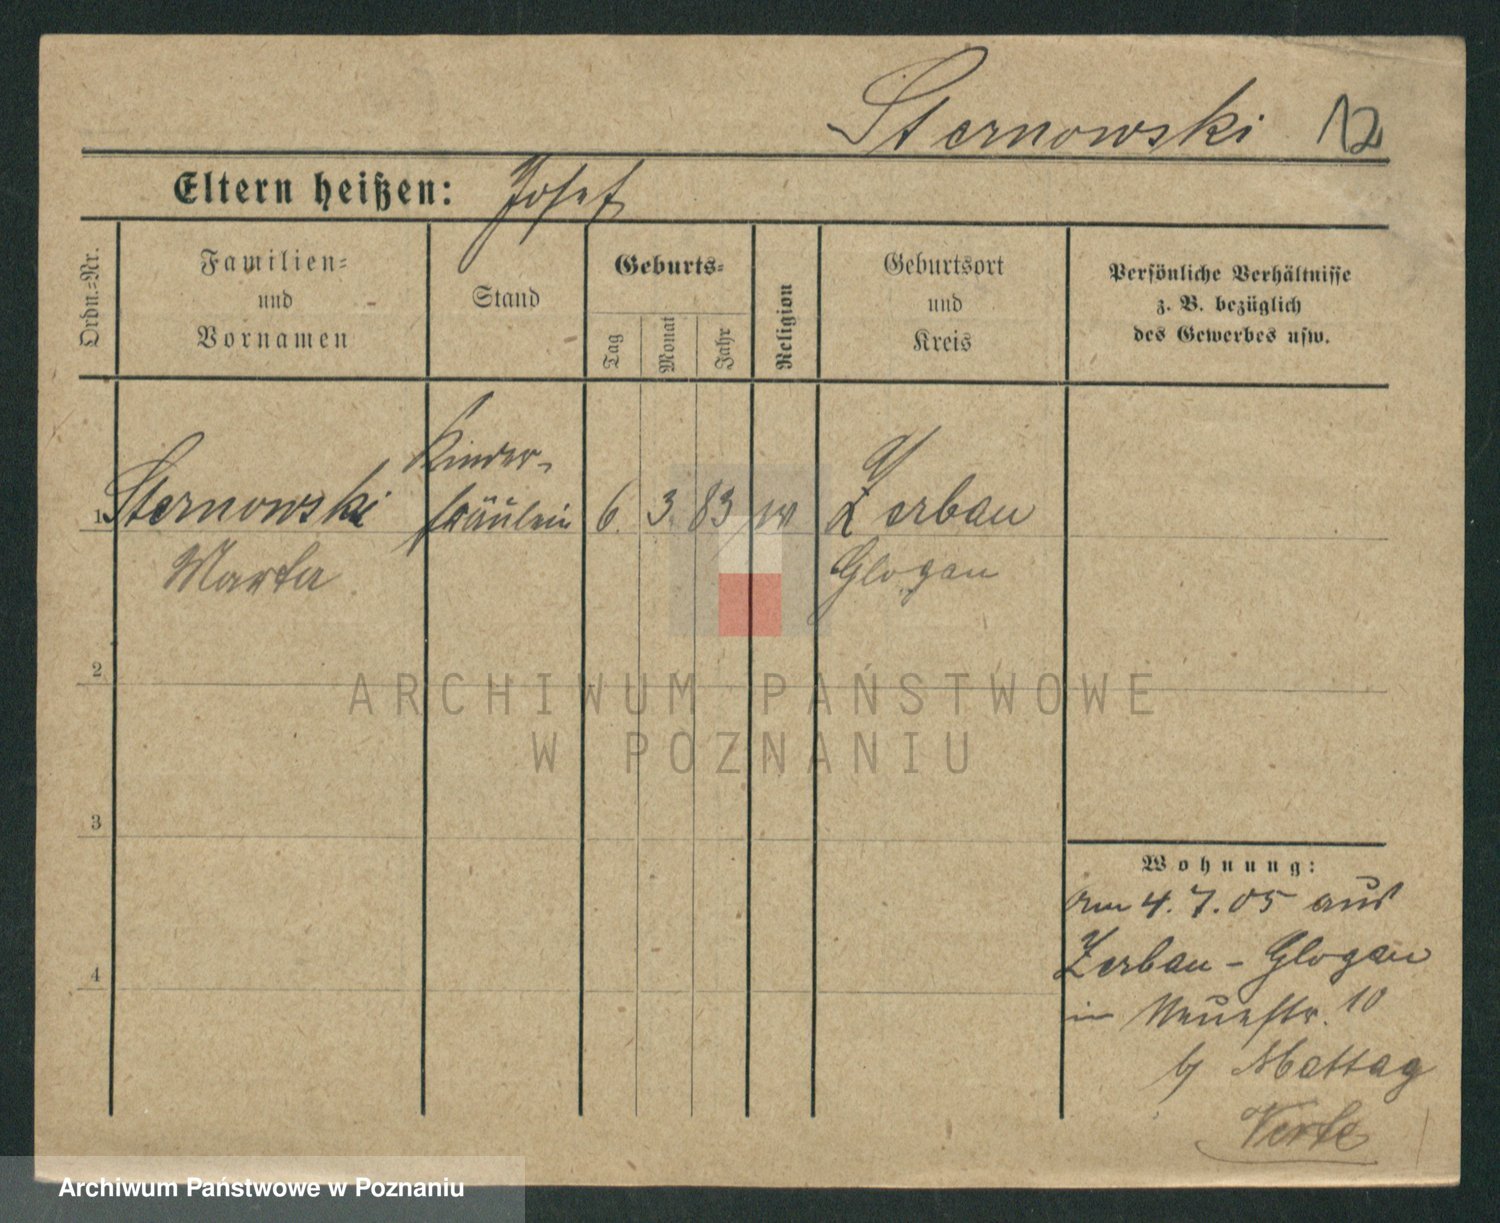 Sternowski 12
Eltern heißen: Josef
Ordn.=Nr.
Familien=
und
Vornamen
Stand
Geburts=
Tag
Monat
Jahr
Religion
Geburtsort
und
Kreis
Persönliche Verhältnisse
z. B. bezüglich
des Gewerbes usw.
Kinder-
1 Sternowski fräulein 6. 3. 83 Zerbau
Marta Glogau
2
ARCHIWUM PAŃSTWOWE
W POZNANIU
3
Wohnung:
am 4. 7. 05 aus
Zerbau - Glogau
4
in Neuestr. 10
b/ Mattag
Archiwum Państwowe w Poznaniu